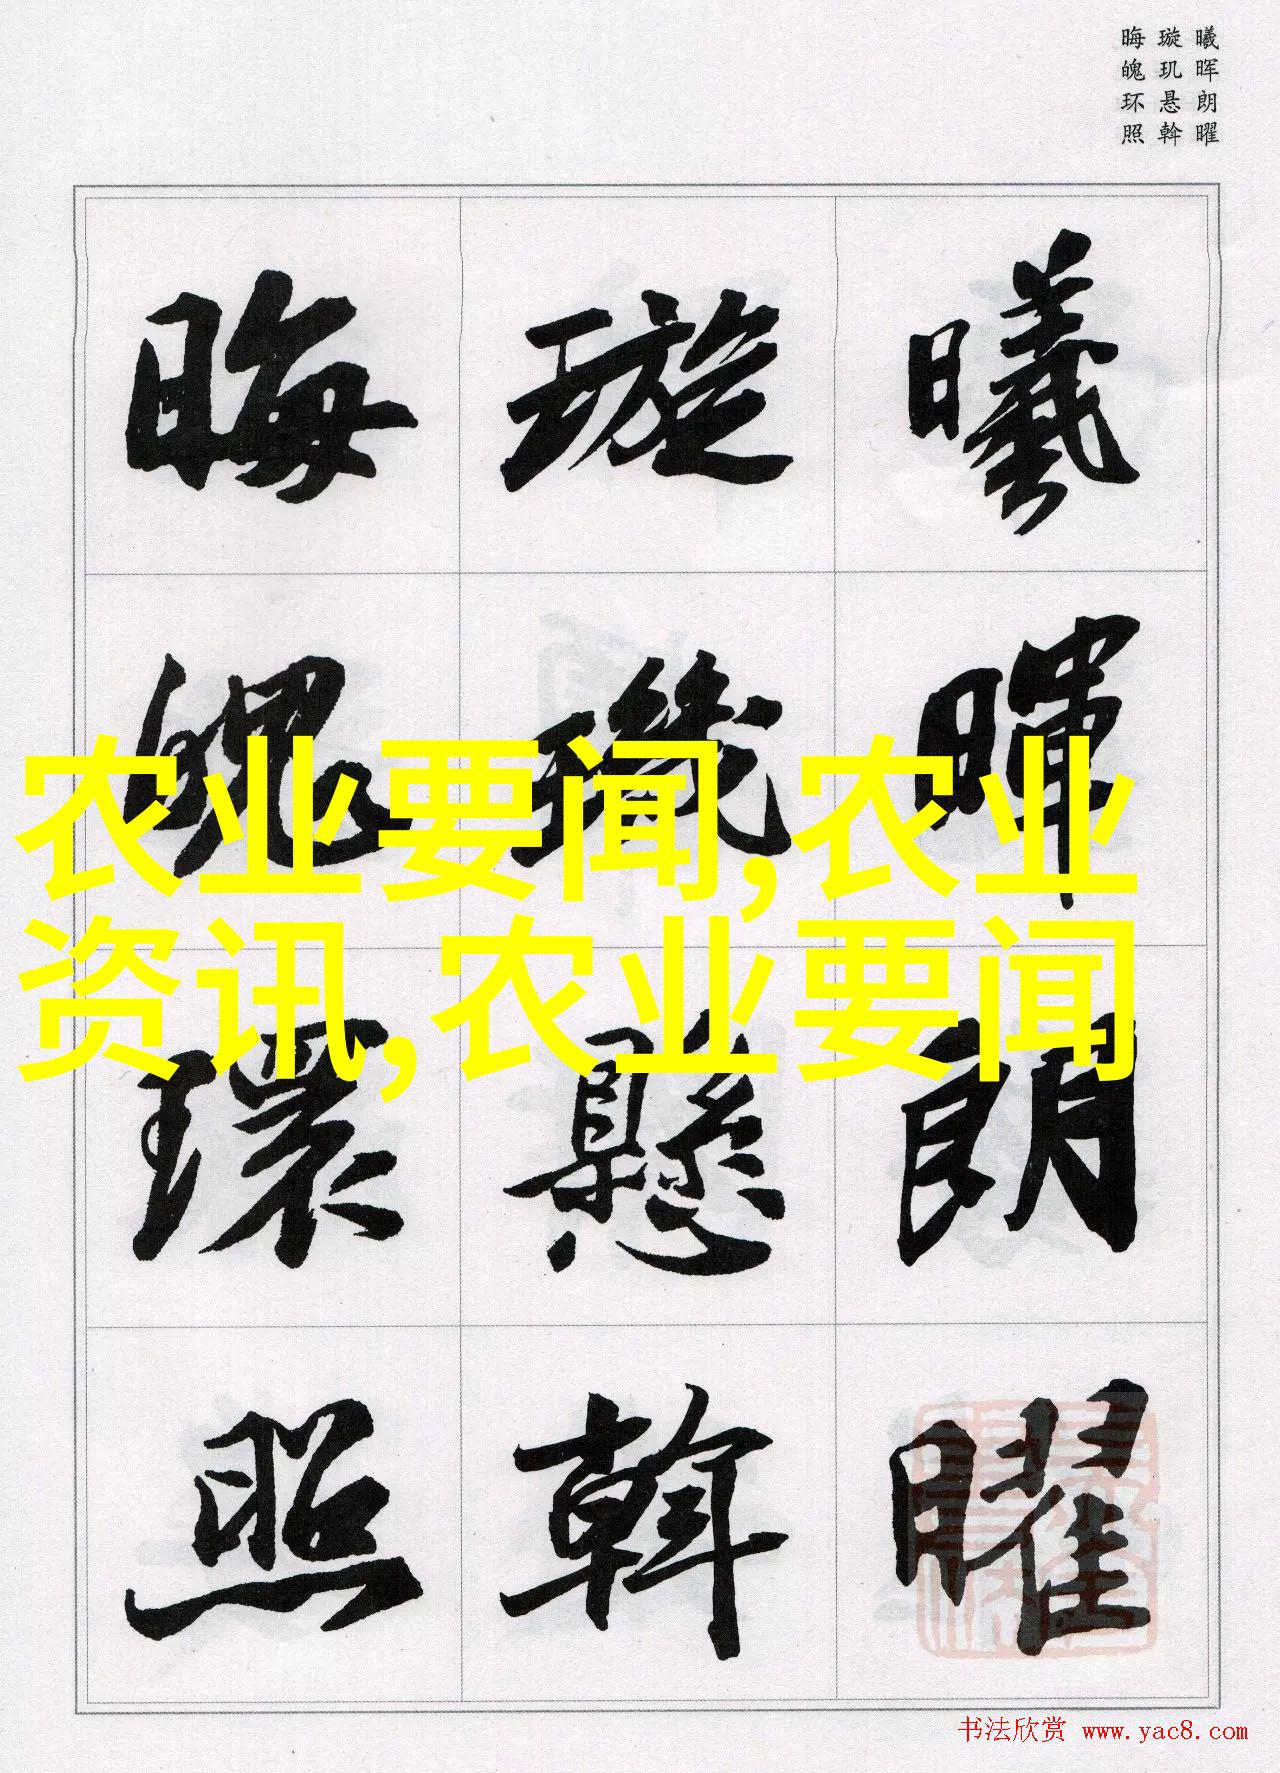 曦晖朗曜
璇玑悬斡
晦魄环照
曦暉朗曜
璇璣懸斡
晦魄環照
农业要闻,农业
资讯,农业要闻
书法欣赏 www.yac8.com